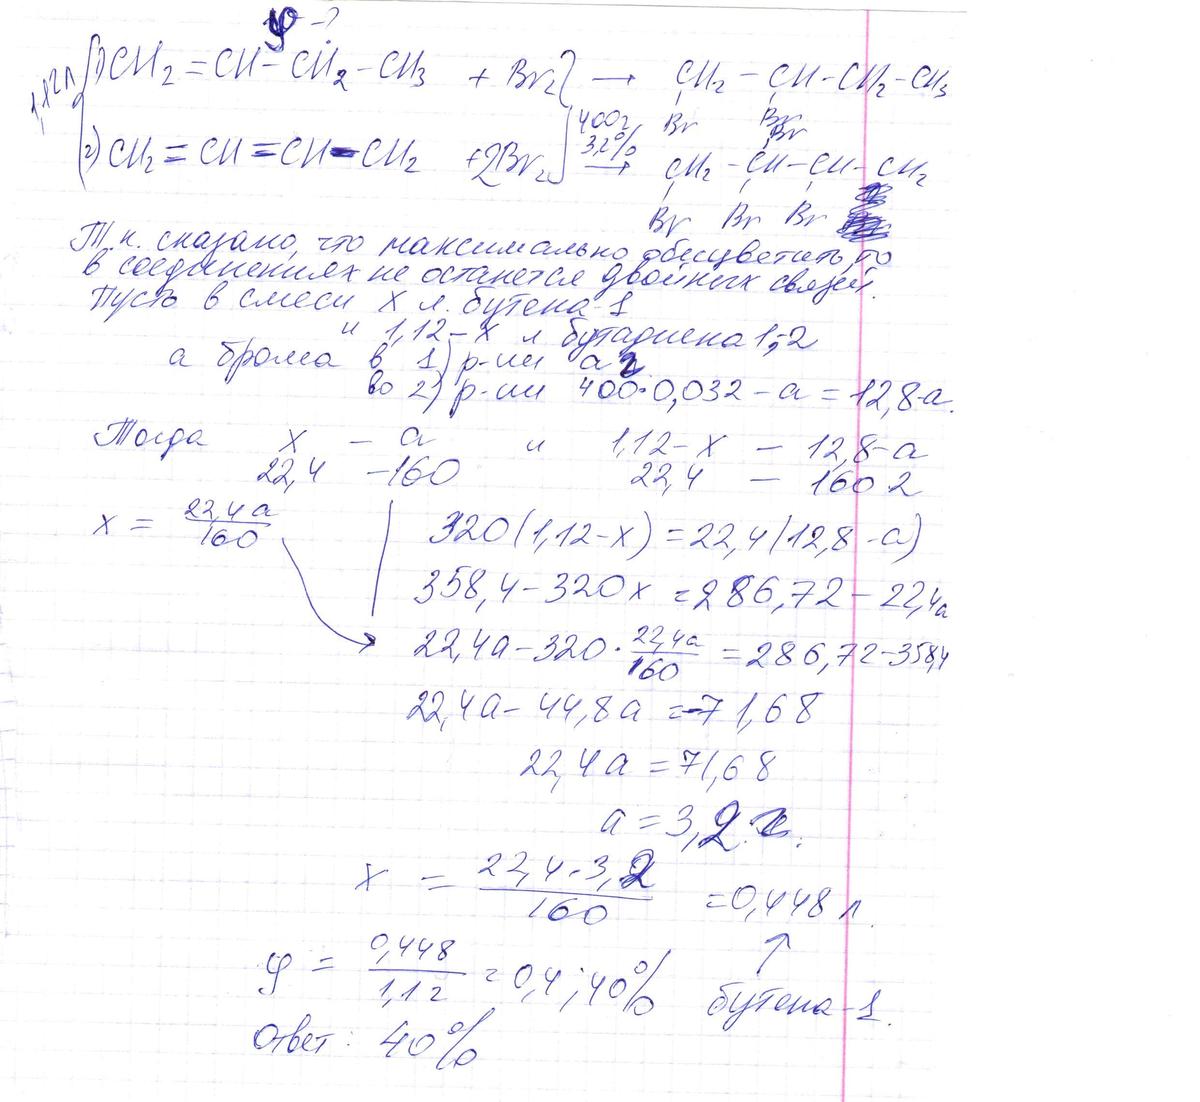 φ - ?
1,12л
1) CH2 = CH - CH2 - CH3 + Br2 → CH2 - CH - CH2 - CH3
Br Br
400г
3,2%
2) CH2 = CH = CH - CH2 + 2Br2 → CH2 - CH - CH - CH2
Br
Br Br Br
Т.к. сказано, что максимально обесцветить, то
в соединениях не останется двойных связей.
Пусть в смеси X л. бутена-1
и 1,12-X л бутадиена 1;2
а брома в 1) р-ии а г
во 2) р-ии 400·0,032 - а = 12,8-а.
Тогда X - а и 1,12-X - 12,8-а
22,4 - 160 22,4 - 160·2
x = 22,4а/160
320(1,12-X) = 22,4(12,8-а)
358,4 - 320X = 286,72 - 22,4а
22,4а - 320 · 22,4а/160 = 286,72 - 358,4
22,4а - 44,8а = -71,68
22,4а = 71,68
а = 3,2 г.
X = 22,4·3,2/160 = 0,448 л.
φ = 0,448/1,12 = 0,4; 40%
бутена-1.
Ответ: 40%